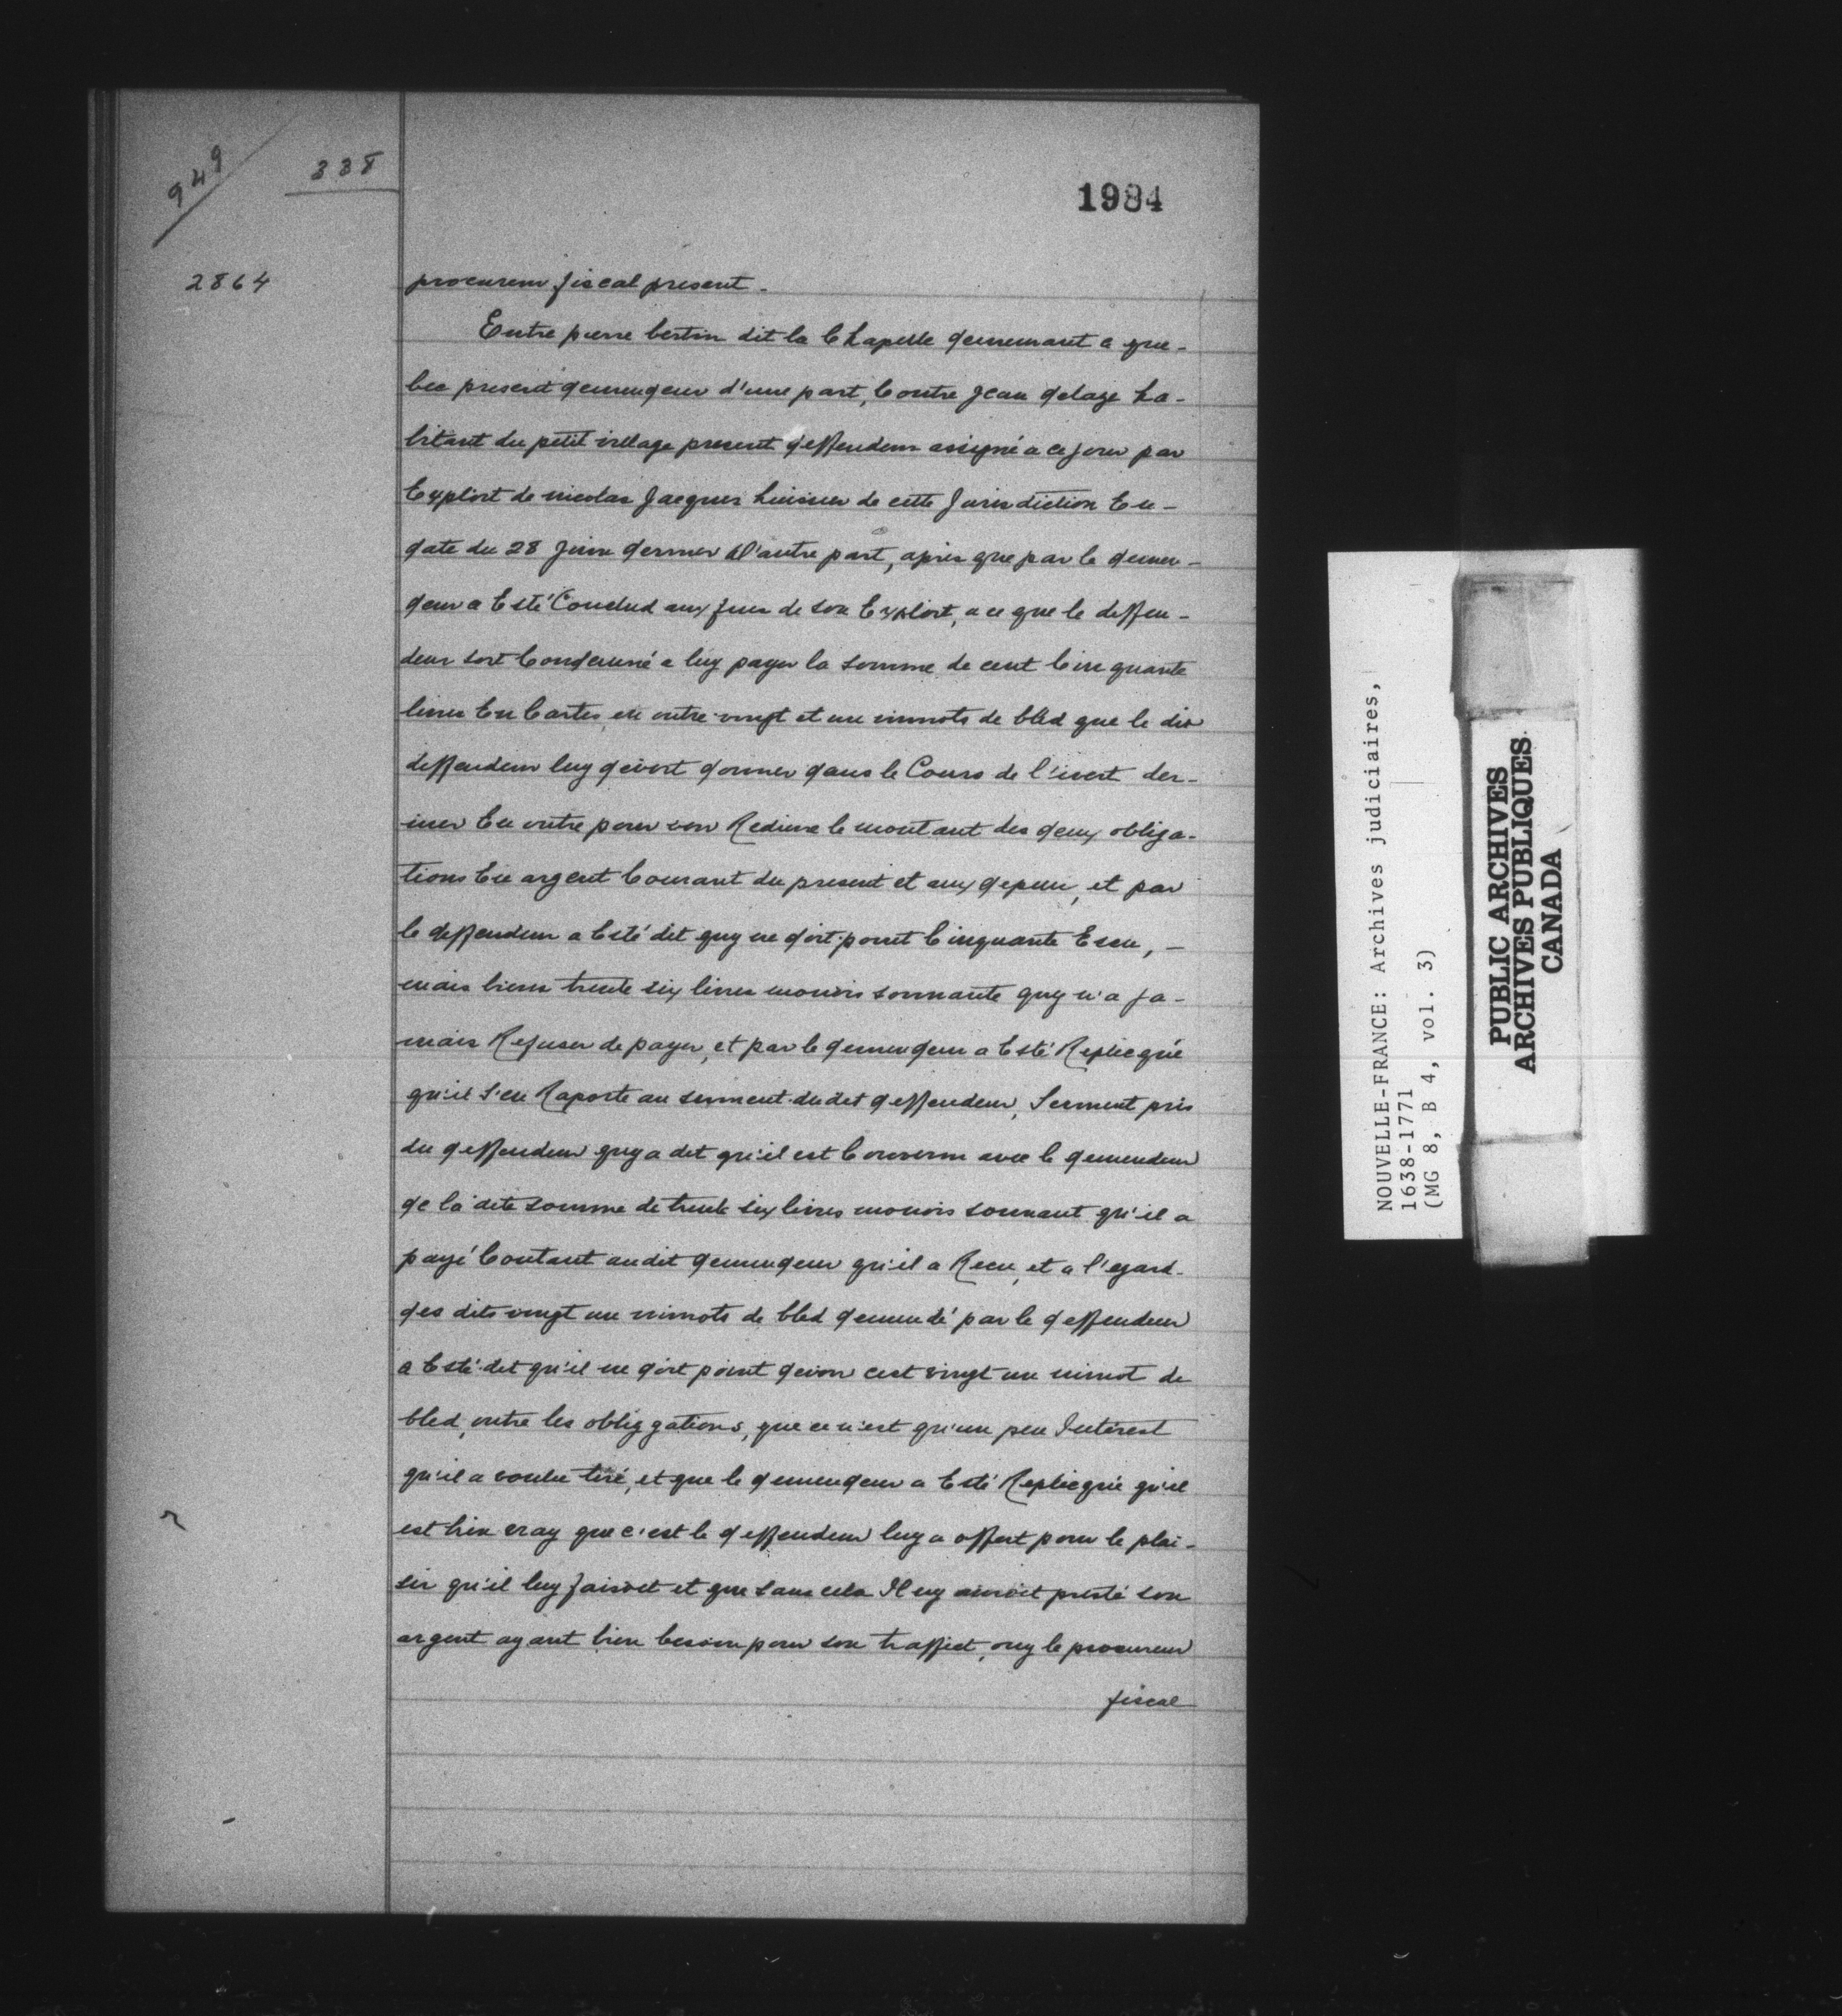 949
338
1984
2864
procureur fiscal present.
Entre pierre bertin dit la Chapelle demeurant a que-
bec present demendeur d'une part, Contre Jean delage ha-
bitant du petit village present deffendeur assigné a ce jour par
Exploit de nicolas Jacques huissier de cette Jurisdiction En-
date du 28 Juin dernier d'autre part, apres que par le demen-
deur a Esté Conclud aux fins de son Exploit, a ce que le deffen-
deur soit Condemné a luy payer la somme de cent Cinquante
livres En Cartes, en outre vingt et un minots de bled que le dit
deffendeur luy devoit donner dans le Cours de l'ivert der-
nier En outre pour son Redieve le montant des deux obliga-
tions En argent Courant du present et aux depens, et par
le deffendeur a Esté dit quy ne doit point Cinquante Escu, -
mais biens trente six livres monois sonnante quy n'a ja-
mais Refuser de payer, et par le demendeur a Esté Replicqué
qu'il s'en Raporte au serment dudit deffendeur, Serment pris
du deffendeur quy a dit qu'il est Convenu avec le demendeur
de la dite somme de trente six livres monois sonnant qu'il a
payé Contant audit demendeur qu'il a Recu, et a l'egard
des dits vingt un minots de bled demendé par le deffendeur
a Esté dit qu'il ne doit point devoir cest vingt un minot de
bled, outre les obliggations, que ce n'est qu'un peu Interest
qu'il a voulu tiré, et que le demendeur a Esté Replicqué qu'il
est bien vray que c'est le deffendeur luy a offert pour le plai-
sir qu'il luy faisoit et que sans cela Il uy auroit presté son
argent ayant bien besoin pour son traffict, ouy le procureur
fiscal
NOUVELLE-FRANCE: Archives judiciaires,
1638-1771
(MG 8, B 4, vol. 3)
PUBLIC ARCHIVES
ARCHIVES PUBLIQUES
CANADA